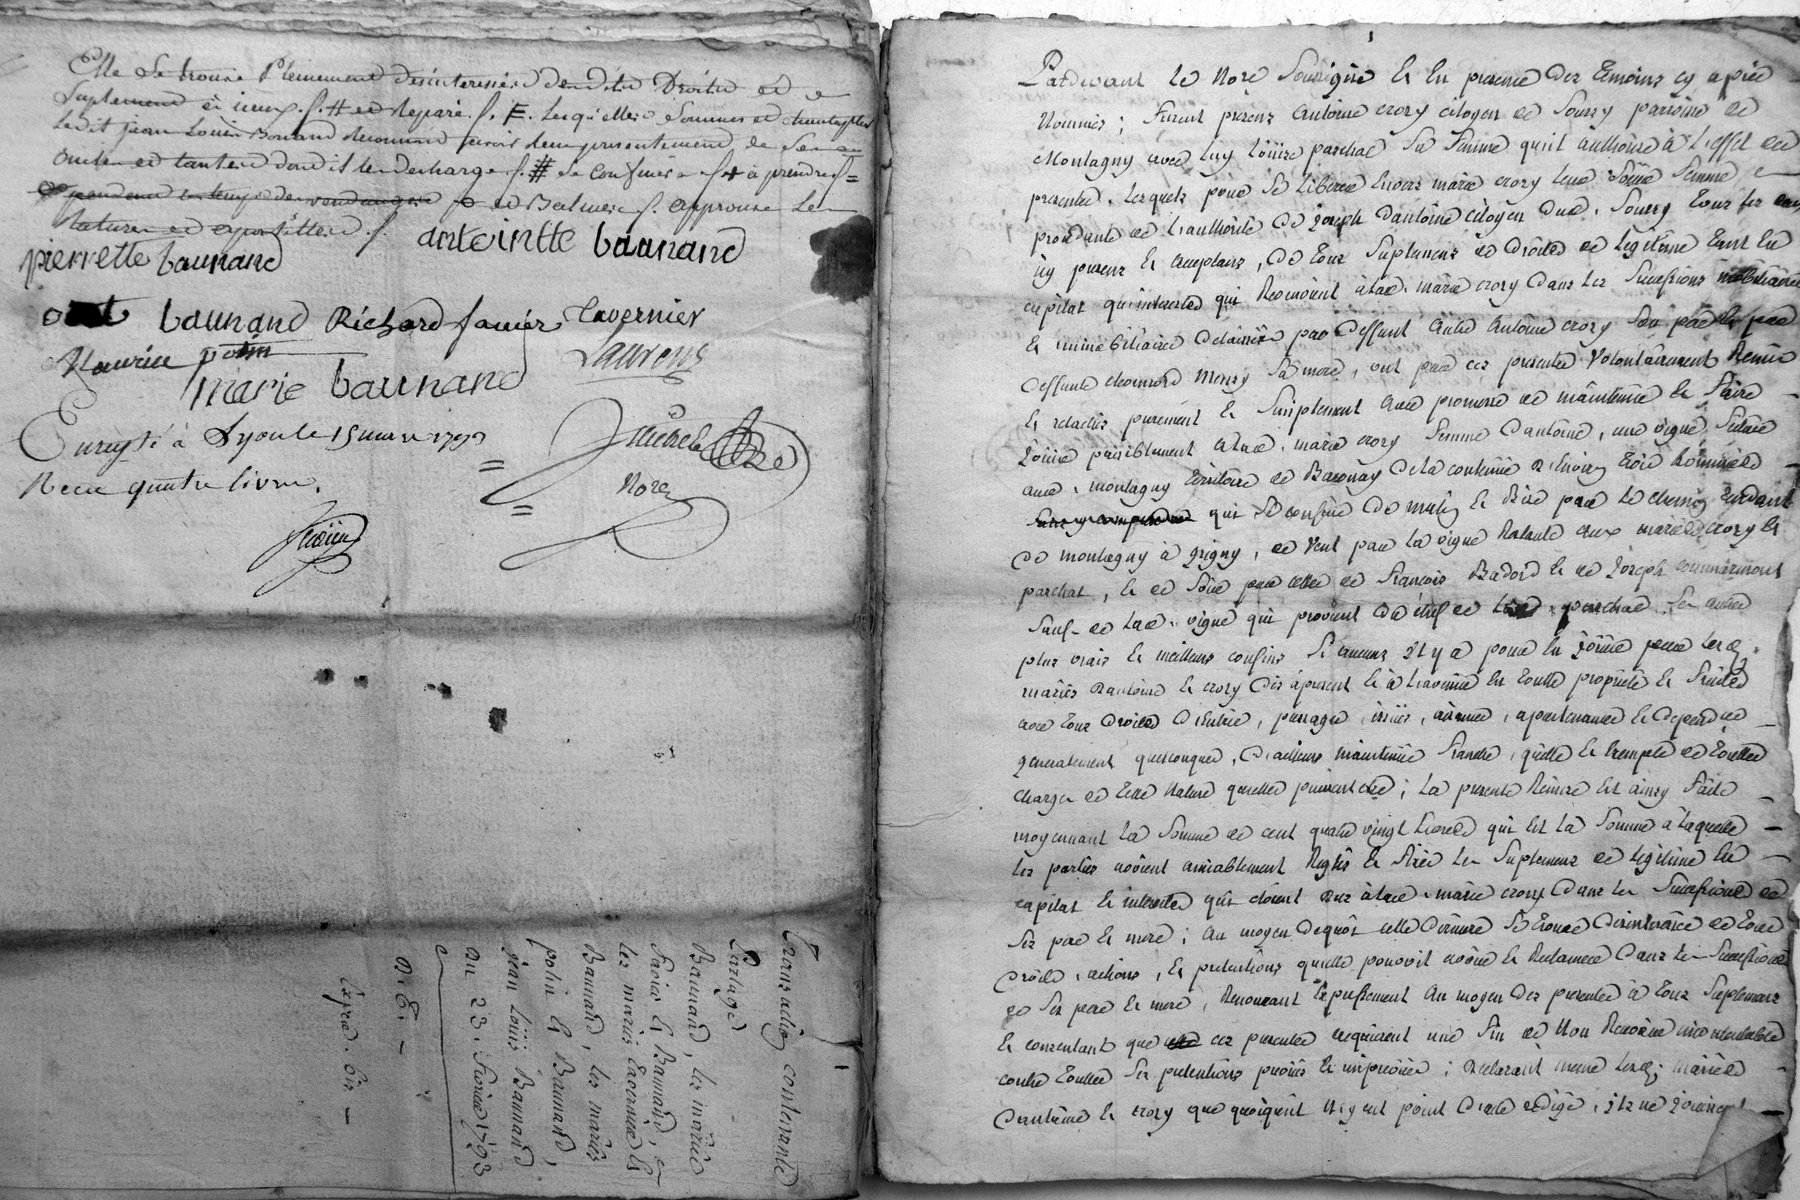 Elle se trouve pleinement desinteressée desdits Droits et
suplement à iceux. f. # et separé. f. Lesquelles sommes et
ledit jean Louis Bonand Reconnu avoir
dont il le decharge f. # se confine à prendre f =
f. approuve le
antoinette baunand
pierrette baunand
baunand Richard favier tavernier
Maurice polin Laurens
marie baunand
Enregté à Lyon le 15 mars 1793
Recu quatre livres.
Transaction contenant
Partage
Baunand, les mariés
Favier et Baunand,
les mariés tavernier et
Baunand, les mariés
polin et Baunand,
jean Louis Baunand
du 23. Fevrier 1793
Pardevant le Nore Soussigné et En presence des temoins cy après
Nommés ; furent presens Antoine crozy citoyen de Sourzy paroisse de
Montagny avec luy Loüise parchat Sa femme qu'il authorise à L'effet des
presentes, Lesquels pour se liberer Envers marie crozy leur Soeur femme
procedante de L'authorité de Joseph dantoine citoyen dud. Sourzy tous les deux
icy presens et acceptans, de tous Suplemens de droits de legitime tant En
capital qu'interets qui Revenoient à lad. marie crozy dans les Successions mobiliaires
et immobiliaires delaissées par deffunt Antoine crozy Son père et par
deffunte Monzy Sa mere, ont par ces presentes volontairement Remis
et relachés purement et Simplement avec promesse de maintenir et faire
Joüir paisiblement à lad. marie crozy femme dantoine, une vigne Scituée
aud. montagny territoire de Baronay de la contenue d'Environ trois hommées
qui se confine de matin et Bise par le chemin tendant
de montagny à grigny, de vent par la vigne Restante aux mariés crozy et
parchat, et de Soir par celle de françois Badord et de Joseph
Sauf de lad. vigne qui provient du chef de lad. parchat Ses autres
plus vrais et meilleurs confins Si aucuns il y a pour En Joüir par lesd.
mariés dantoine et crozy dès àpresent et à L'avenir En toutte proprieté et fruits
avec tous droits d'entrée, passages, issües, aisances, apartenances et dependces
generalement quelconques, d'ailleurs maintenüe franche, quitte et Exempte de touttes
charges de telle Nature quelles puissent etre ; La presente Remise Est ainsy faite
moyennant la Somme de cent quatre vingt Livres qui Est la Somme à laquelle
les parties avoient amiablement Reglés et fixés les Suplemens de legitime En
capital et interets qui etoient dus à lad. marie crozy dans les Successions de
Ses pere et mere ; au moyen dequoi cette derniere Se trouve desinteressée de tous
droits, actions, et pretentions qu'elle pouvoit avoir et Reclamer dans les Successions
de Ses pere et mere, Renonceant Expressement au moyen des presentes à tous Suplemens
et consentant que ces presentes acquierent une fin de Non Recevoir
contre touttes Ses pretentions ; declarant meme lesd. mariés
dantoine et crozy que quoiqu'il N'y ait point d'acte redigé, ils ne